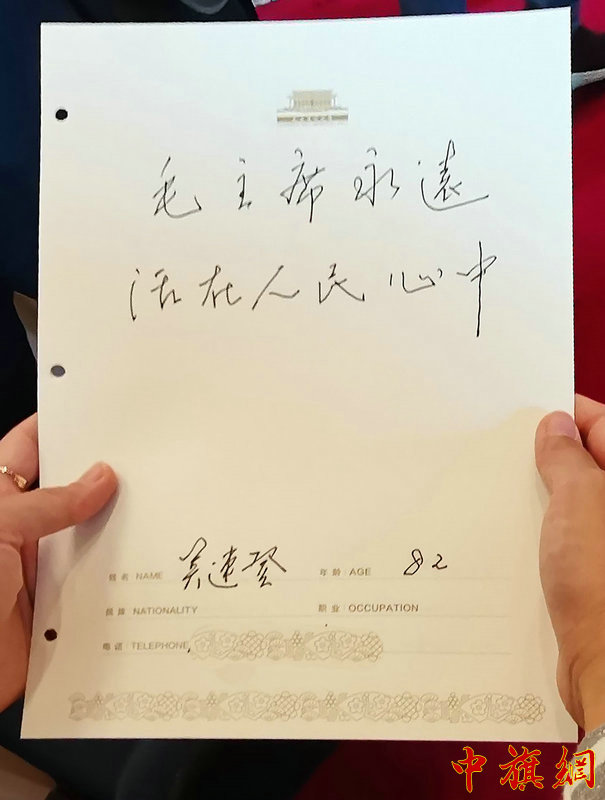 毛主席永遠
活在人民心中
姓名 NAME 吴連登 年龄 AGE 82
民族 NATIONALITY 职业 OCCUPATION
电话 TELEPHONE
中旗網